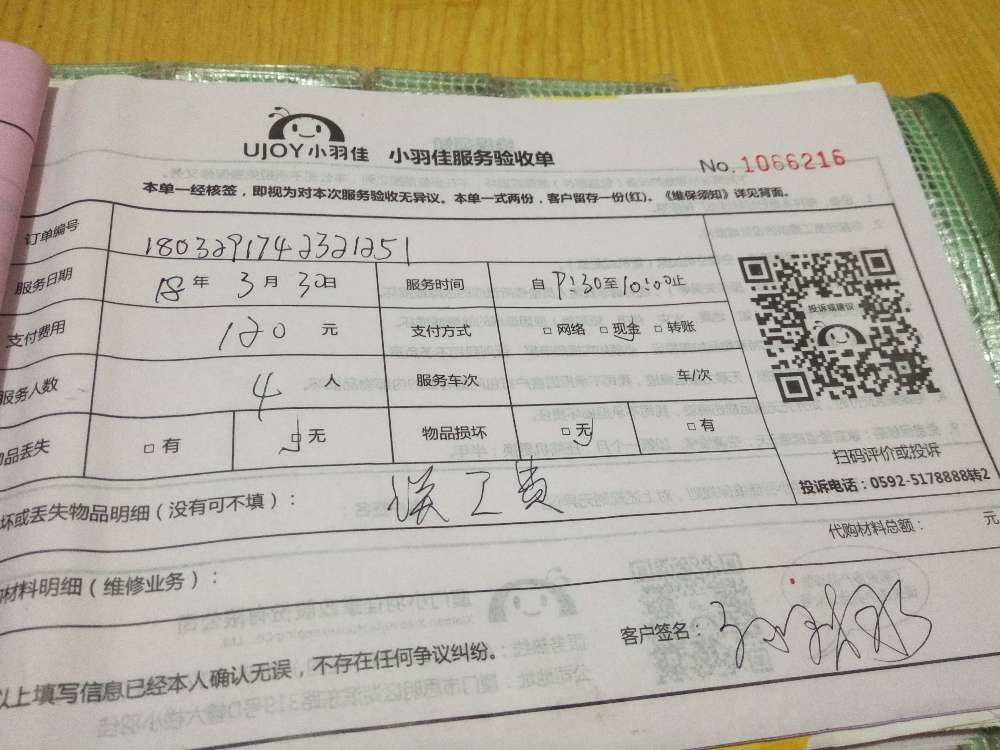 UJOY小羽佳 小羽佳服务验收单
No.1066216
本单一经核签，即视为对本次服务验收无异议。本单一式两份，客户留存一份(红)。《维保须知》详见背面。
订单编号 1803291742321251
服务日期 18年3月30日 服务时间 自8:30至10:00止
支付费用 120元 支付方式 □网络 □现金 □转账
服务人数 4人 服务车次 车/次
品丢失 □有 □无 物品损坏 □无 □有
投诉或建议
扫码评价或投诉
投诉电话：0592-5178888转2
坏或丢失物品明细（没有可不填）： 误工费
代购材料总额： 元
材料明细（维修业务）：
客户签名：
以上填写信息已经本人确认无误，不存在任何争议纠纷。